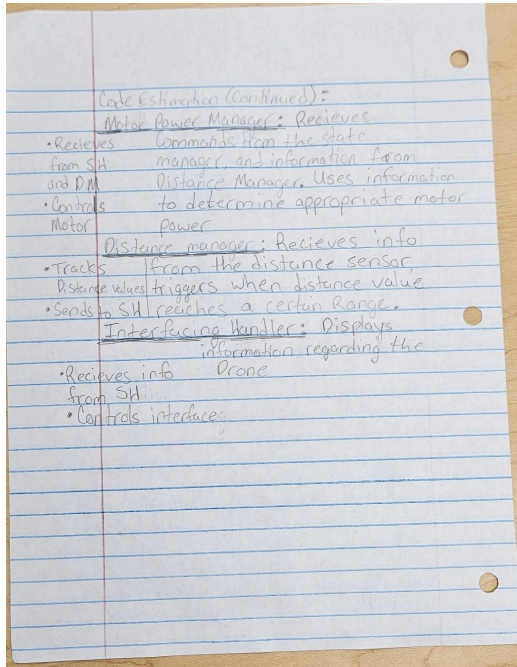 Code Estimation (Continued):
Motor Power Manager: Recieves
Commands from the state
manager, and information from
Distance Manager. Uses information
to determine appropriate motor
power
• Recieves
from SH
and DM
• Controls
Motor
Distance manager: Recieves info
from the distance sensor,
triggers when distance value
reaches a certain Range.
• Tracks
Distance values
• Sends to SH
Interfacing Handler: Displays
information regarding the
Drone
• Recieves info
from SH
• Controls interface